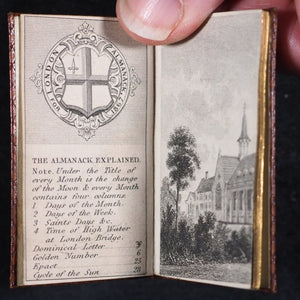 LONDON ALMANACK
FOR 1867
THE ALMANACK EXPLAINED.
Note. Under the Title of
every Month is the change
of the Moon & every Month
contains four columns.
1 Days of the Month.
2 Days of the Week.
3 Saints Days &c.
4 Time of High Water
at London Bridge.
Dominical Letter F
Golden Number 6
Epact 25
Cycle of the Sun 28